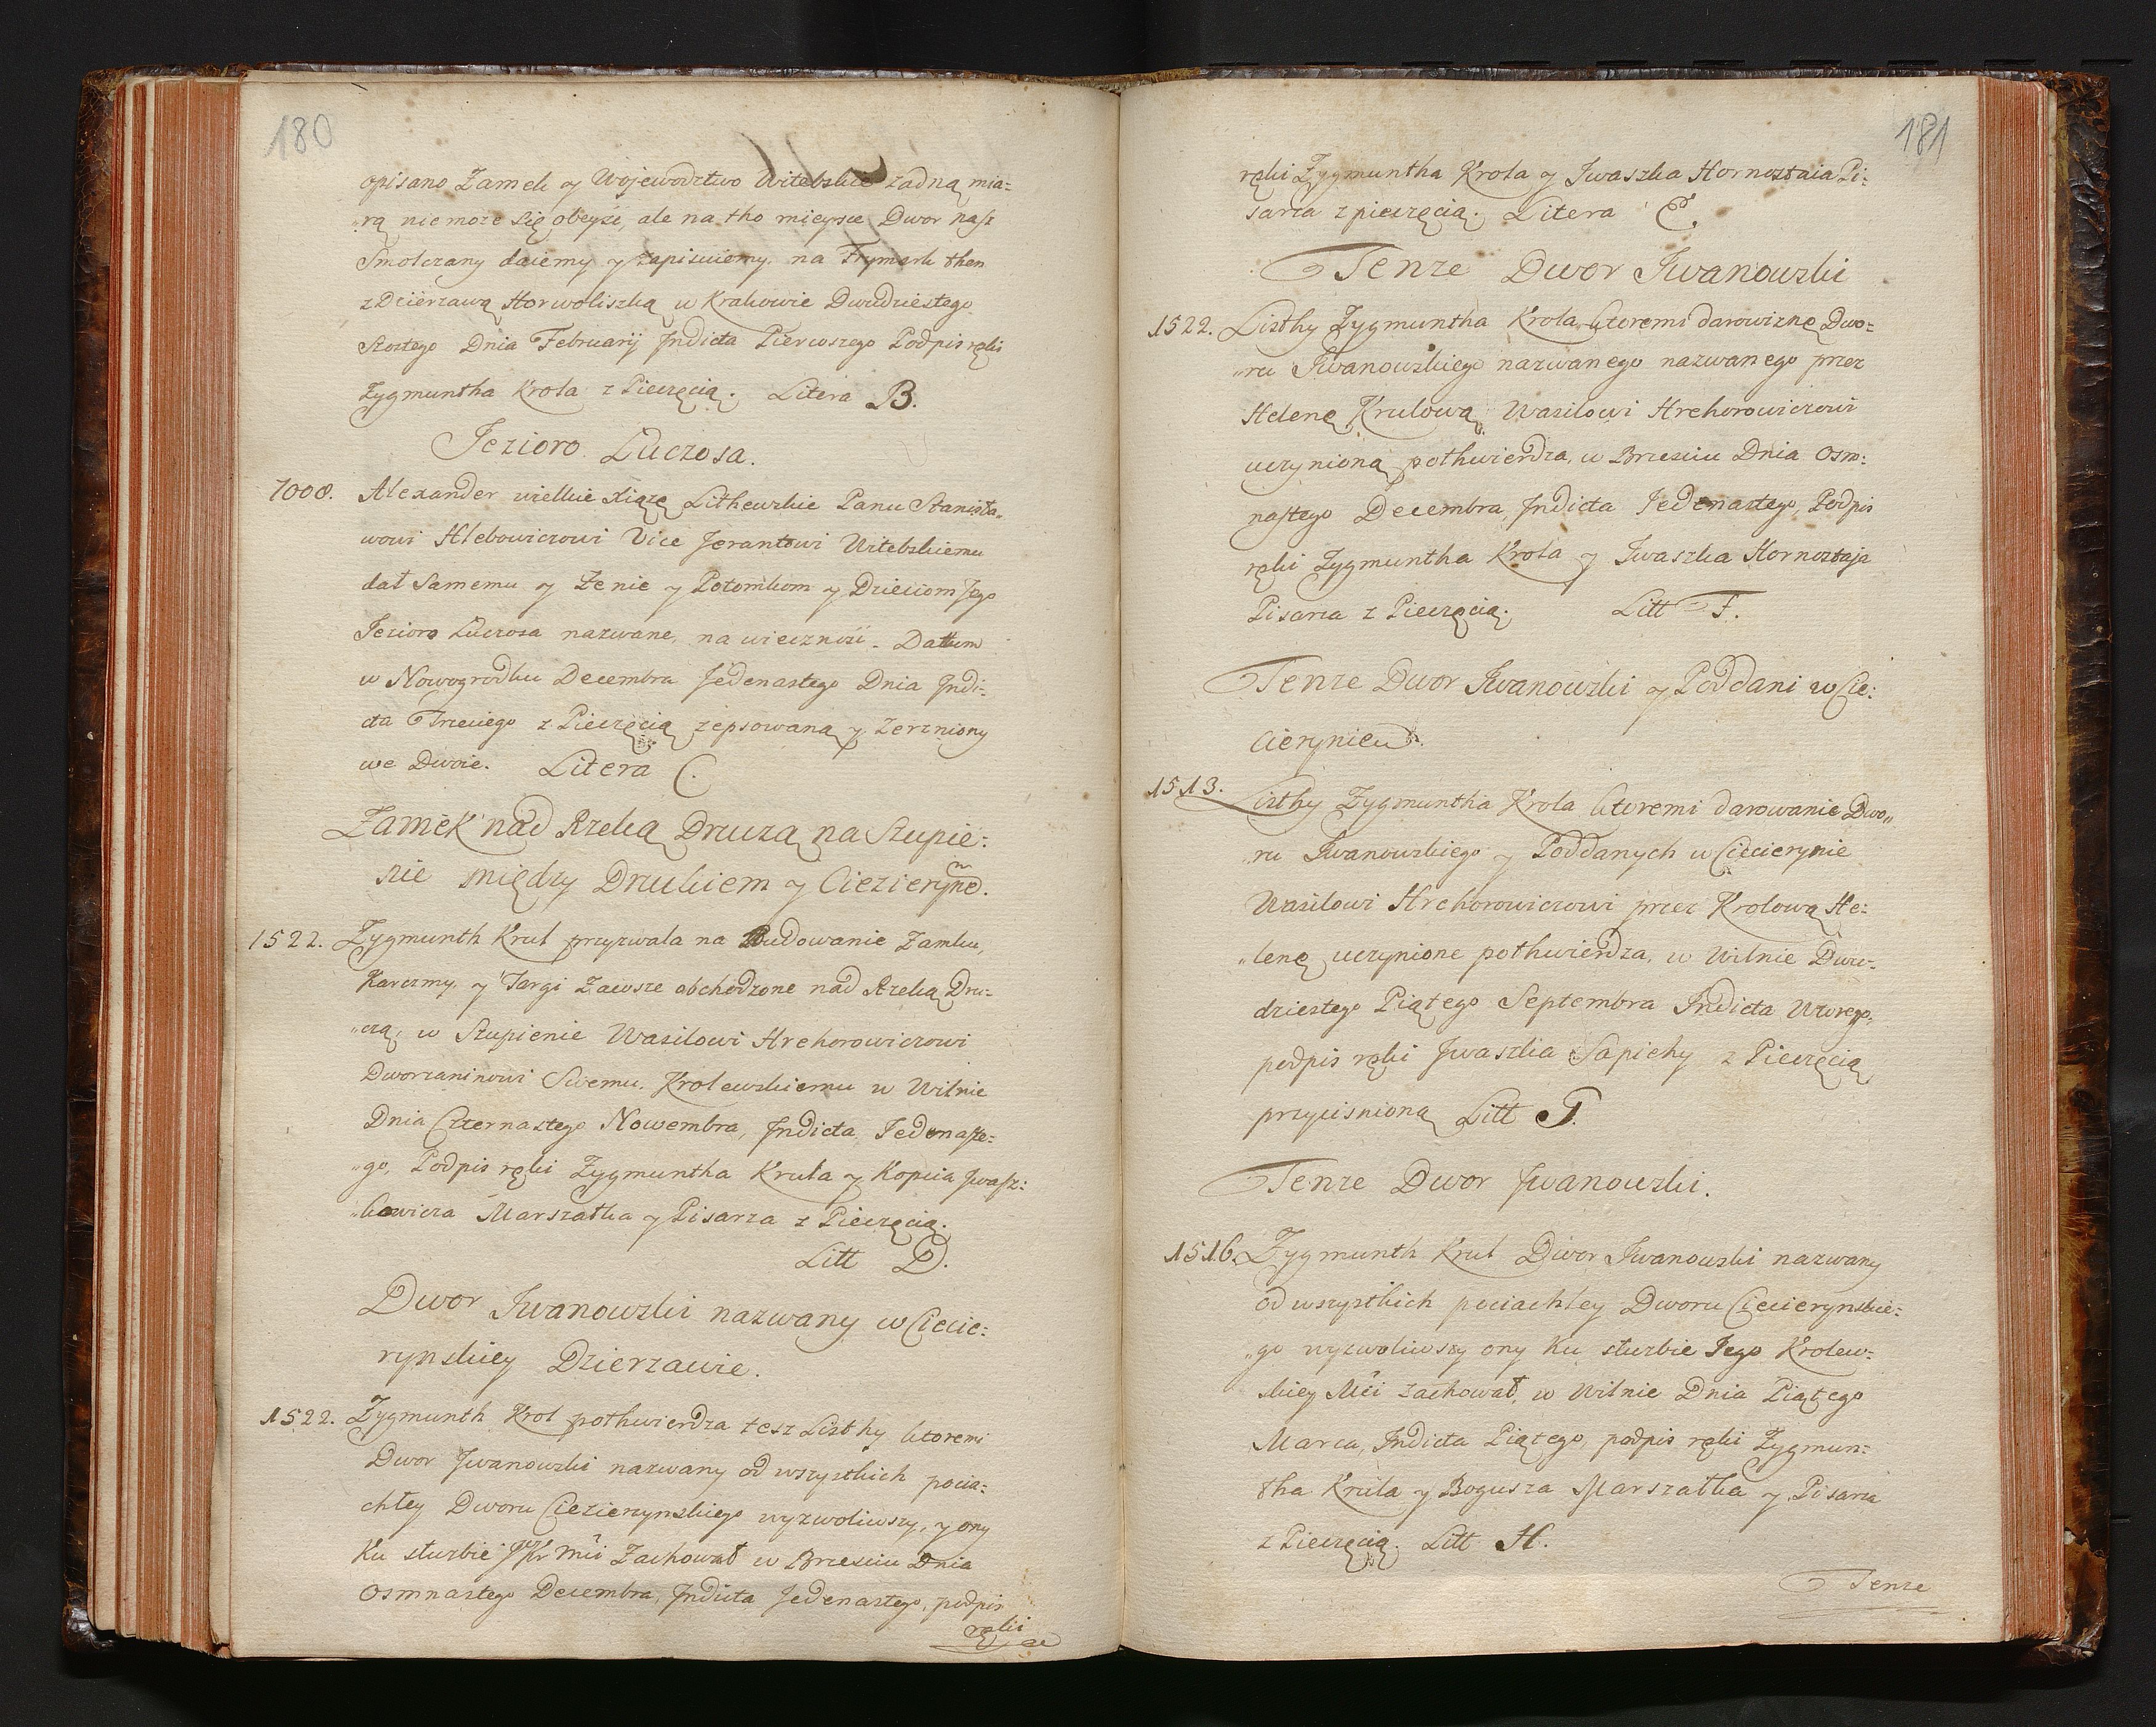 180
opisano Zamek y Wojewodztwo Witebskie żadną mia=
„rą nie może się obeyść, ale na tho mieysce Dwor nasz
Smolczany daiemy y zapisuiemy, na Frymark then
z Dzierzawą Horwoliszką w Krakowie Dwudziestego
Szostego Dnia Februarij Indicta Pierwszego Podpis ręki
Zygmuntha Krola z Pieczęcią. Litera B.
Jezioro Łuczosa.
7008. Alexander wielkie xiąże Lithewskie Panu Stanisła„
wowi Hlebowiczowi Vice Jerantowi Witebskiemu
dał Samemu y Żenie y Potomkom y Dzieciom Jego
Jezioro Łuczosa nazwane, na wieczność. Dattum
w Nowogrodku Decembra Jedenastego Dnia Indi=
cta Trzeciego z Pieczęcią zepsowaną y zerzniony
we Dwoie. Litera C.
Zamek nad Rzeką Druzą na Stupie=
nie między Druckiem y Ciecierynem.
1522. Zygmunth Krul przyzwala na Budowanie Zamku,
Karczmy y Targi Zawsze obchodzone nad Rzeką Dru=
„czą, w Stupienie Wasilowi Hrehorowiczowi
Dworzaninowi Swemu Krolewskiemu w Wilnie
Dnia Czternastego Nowembra, Indicta Jedenaste=
„go, Podpis ręki Zygmuntha Krula y Kopcia Jwasz=
„kowicza Marszałka y Pisarza z Pieczęcią.
Litt D.
Dwor Jwanowski nazwany w Ciecie=
rynskiey Dzierzawie.
1522. Zygmunth Krol pothwierdza tesz Listhy ktoremi
Dwor Jwanowski nazwany od wszystkich pocia=
chłey Dworu Ciecierynskiego wyzwoliwszy, y ony
Ku służbie JKr Mći Zachował w Brzesciu Dnia
Osmnastego Decembra, Indicta Jedenastego, podpis
ręki
181
ręki Zygmuntha Krola y Jwaszka Hornostaia Pi=
sarza z pieczęcią. Litera E.
Tenze Dwor Jwanowski
1522. Listhy Zygmuntha Krola, ktoremi darowiznę Dwo=
„ru Jwanowskiego nazwanego nazwanego przez
Helenę Krulową Wasilowi Hrehorowiczowi
uczynioną pothwierdza, w Brzesciu Dnia Osm=
nastego Decembra, Indicta Jedenastego, Podpis
ręki Zygmuntha Krola y Jwaszka Hornostaja
Pisarza z Pieczęcią. Litt F.
Tenze Dwor Jwanowski y Poddani w Cie=
cierynie.
1513. Listhy Zygmuntha Krola ktoremi darowanie Dwo„
„ru Jwanowskiego y Poddanych w Ciecierynie
Wasilowi Hrehorowiczowi przez Krolową He=
„lenę uczynione pothwierdza, w Wilnie Dwu=
dziestego Piątego Septembra Indicta Wtorego,
podpis ręki Jwaszka Sapiehy z Pieczęcią
przycisnioną Litt G.
Tenze Dwor Jwanowski.
1516. Zygmunth Krul Dwor Jwanowski nazwany
od wszystkich pociachłey Dworu Ciecierynskie=
„go wyzwoliwszy ony Ku służbie Jego Krolew=
skiey Mći zachował, w Wilnie Dnia Piątego
Marca, Indicta Piątego, podpis ręki Zygmun=
tha Krula y Bogusza Marszałka y Pisarza
z Pieczęcią. Litt H.
Tenze